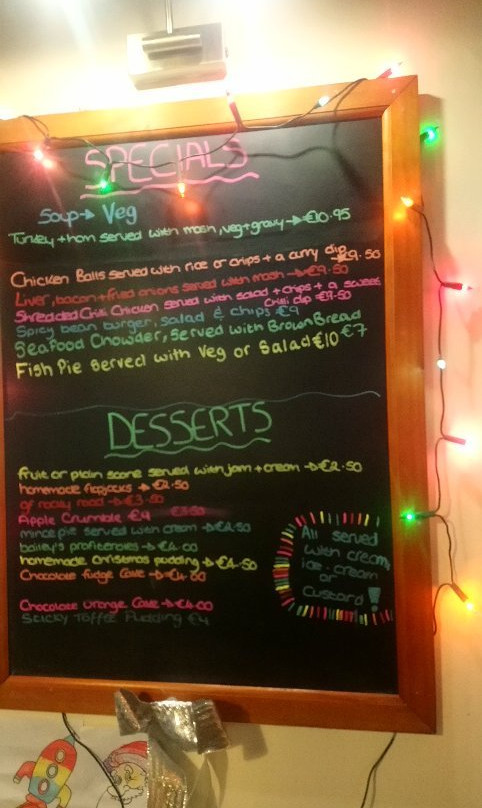 SPECIALS
Soup→ Veg
Turkey + ham served with mash, veg + gravy → €10.95
Chicken Balls served with rice or chips + a curry dip → €9.50
Liver, bacon + fried onions served with mash → €9.50
Shredded Chilli Chicken served with salad + chips + a sweet
chilli dip €9.50
Spicy bean burger, salad & chips €9
Seafood Chowder, served with Brown Bread €7
Fish Pie served with Veg or Salad €10
DESSERTS
fruit or plain scone served with jam + cream → €2.50
homemade flapjacks → €2.50
rocky road → €3.50
Apple Crumble €4 €3.50
mince pie served with cream → €2.50
bailey's profiteroles → €4.00
homemade christmas pudding → €4.50
Chocolate fudge Cake → €4.00
Chocolate Orange Cake → €4.00
Sticky Toffee Pudding €4
All served
with cream,
ice-cream
or
custard!